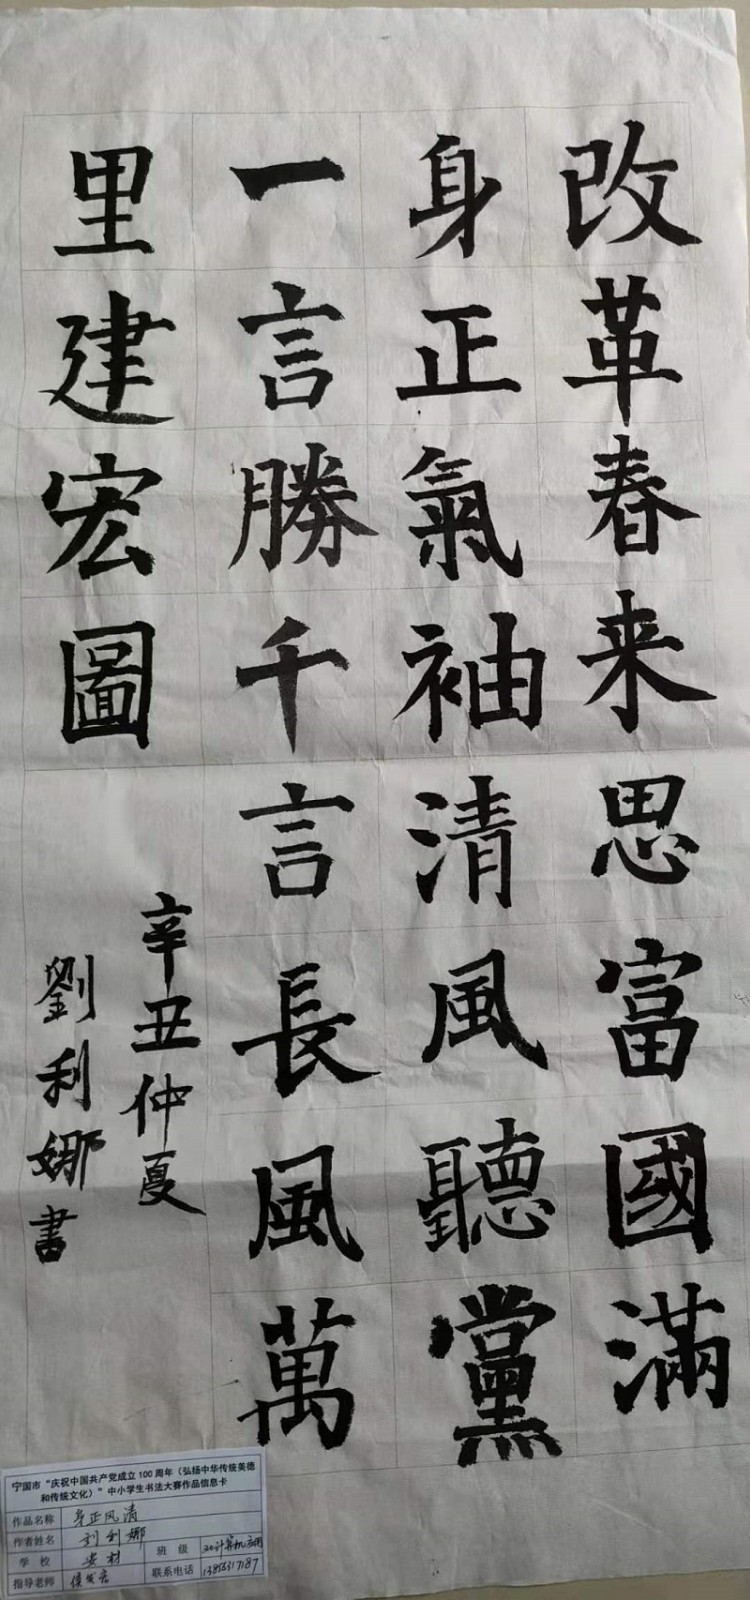 改革春来思富國滿
身正氣袖清風聽黨
一言勝千言長風萬
里建宏圖
辛丑仲夏
劉利娜書
宁国市“庆祝中国共产党成立100周年（弘扬中华传统美德
和传统文化）”中小学生书法大赛作品信息卡
作品名称 身正风清
作者姓名 刘利娜 班级 20计算机应用
学校 安材 联系电话
指导老师